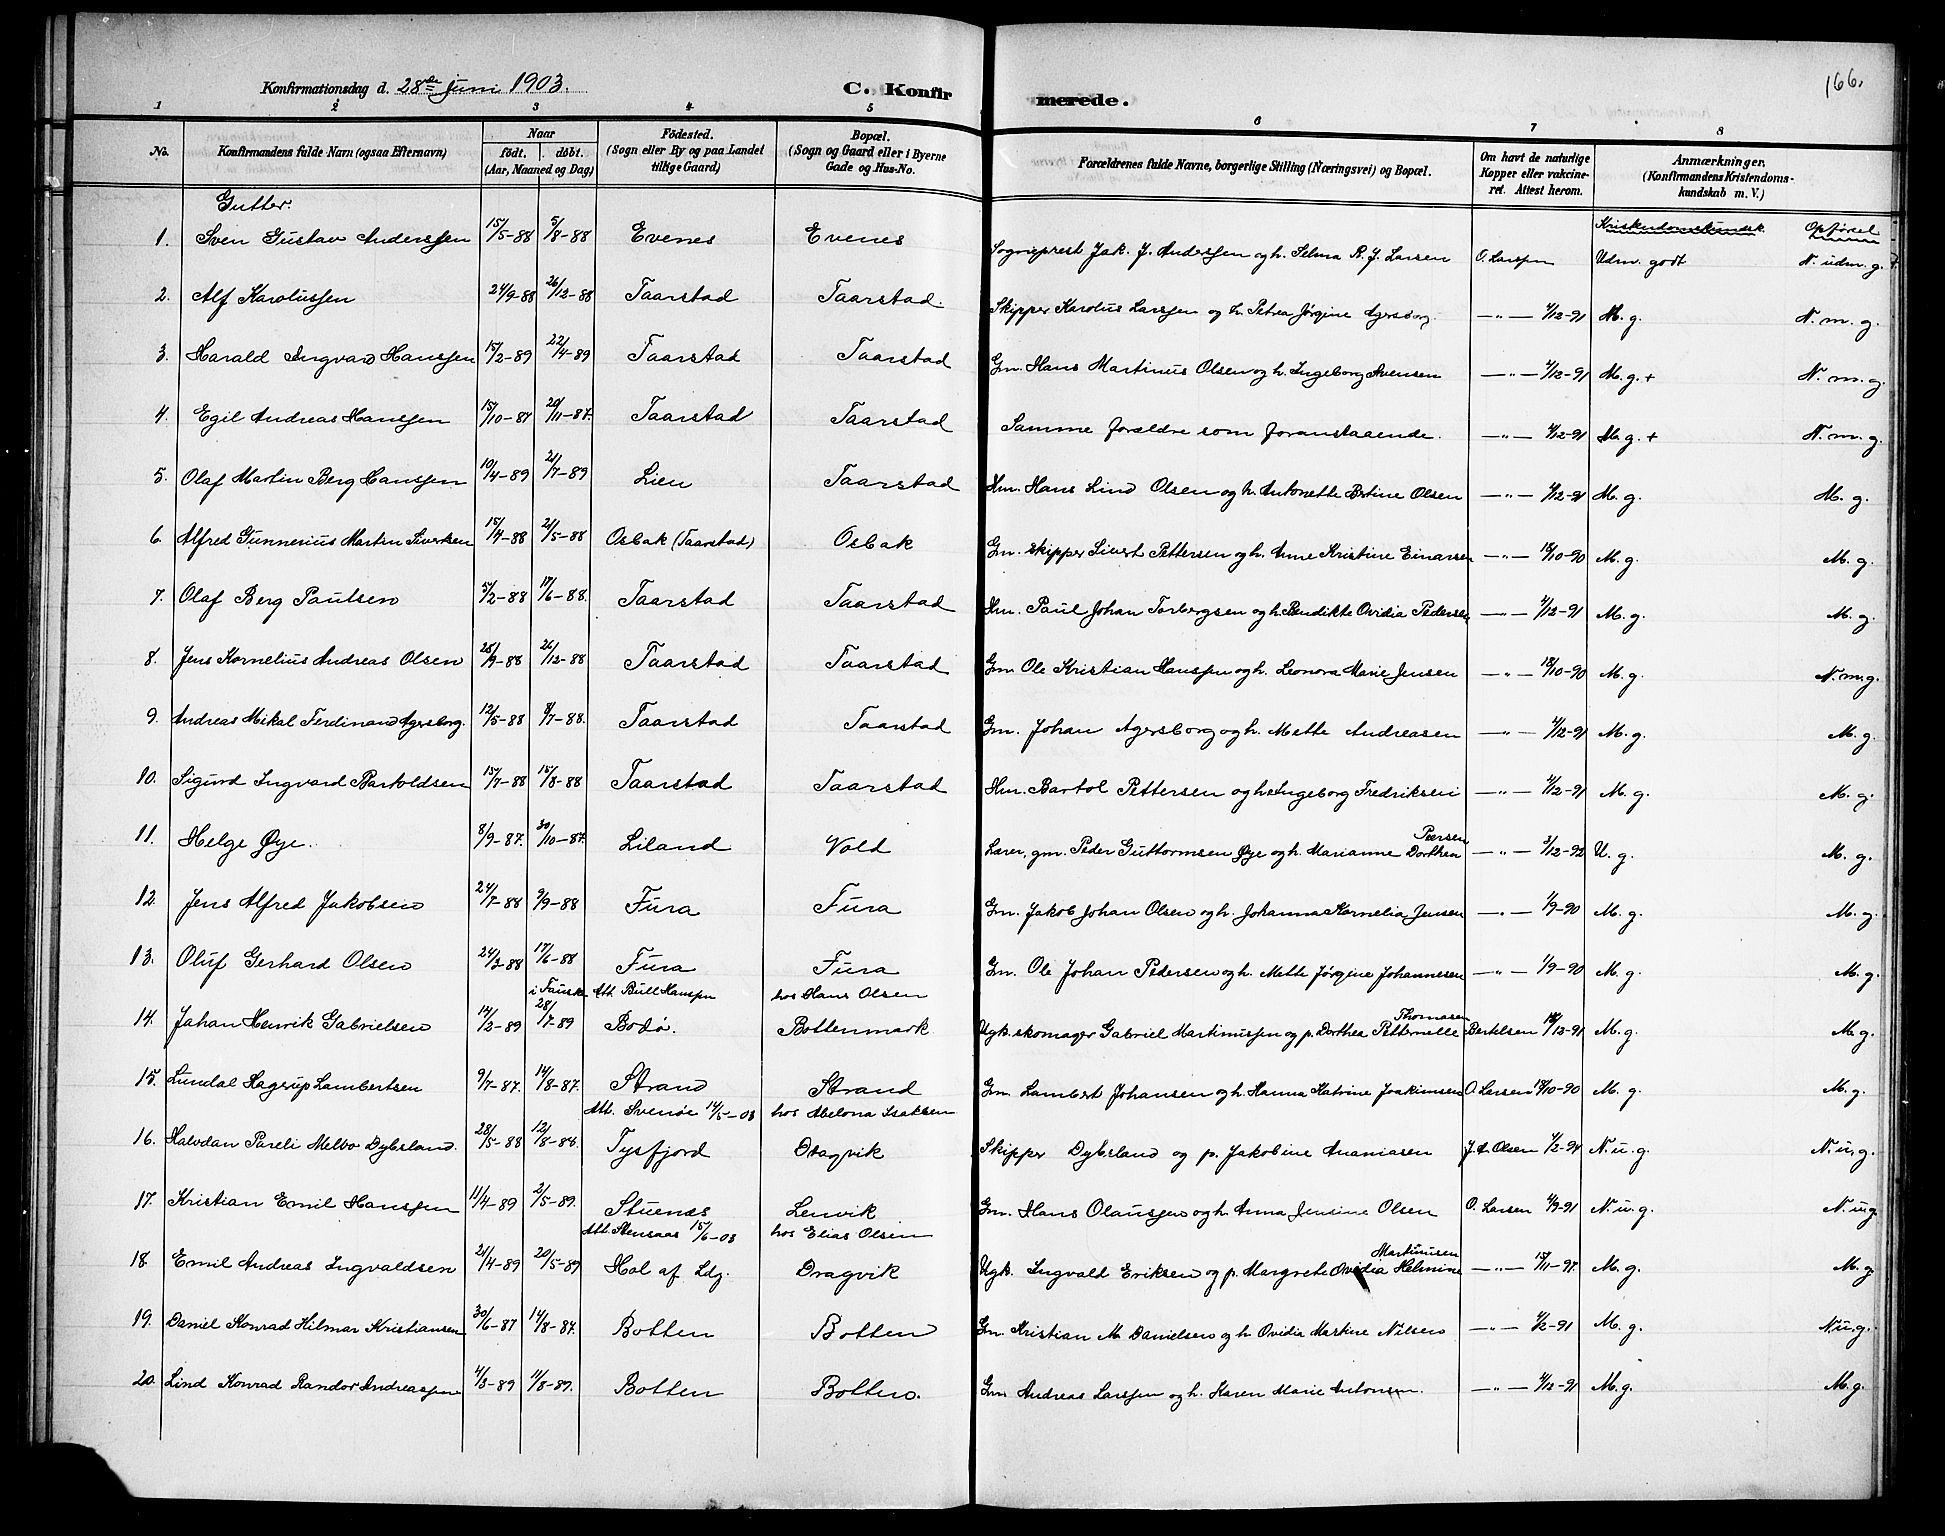 Konfirmationsdag d. 28de juni 1903. C. Konfirmerede. 166.
1 2 3 4 5 6 7 8
No. Konfirmandens fulde Navn (ogsaa Efternavn) Naar født. døbt. (Aar, Maaned og Dag) Fødested. (Sogn eller By og paa Landet tillige Gaard) Bopæl. (Sogn og Gaard eller i Byerne Gade og Hus-No. Forældrenes fulde Navne, borgerlige Stilling (Næringsvei) og Bopæl. Om havt de naturlige Kopper eller vakcineret. Attest herom. Anmærkninger. (Konfirmandens Kristendomskundskab m. V.)
Gutter. Kristendomskundsk. Opførsel
1. Sven Gustav Anderssen 15/5-88 5/8-88 Evenes Evenes Sogneprest Jak. J. Anderssen og h. Selma R. J. Larsen O. Larssen Udm. godt N. udm. g. +
2. Alf Karolussen 24/9-88 26/12-88 Taarstad Taarstad. Skipper Karolus Larssen og h. Petrea Jørgine Agersborg. —"— 4/12-91 M. g. N. m. g.
3. Harald Ingvard Hanssen 15/2-89 22/4-89 Taarstad Taarstad Gm. Hans Martinus Olsen og h. Ingeborg Svensen —"— 4/12-91 M. g. + N. m. g.
4. Egil Andreas Hanssen 15/10-87 20/11-87. Taarstad Taarstad Samme forældre som foranstaaende. —"— 4/12-91 M. g. + N. m. g.
5. Olaf Martin Berg Hanssen 10/4-89 21/7-89 Lien Taarstad Hm. Hans Lind Olsen og h. Antonette Bertine Olsen —"— 4/12-91 M. g. M. g.
6. Alfred Gunnerius Martin Sivertsen 15/4-88 21/5-88 Osbak (Taarstad) Osbak Gm. skipper Sivert Pettersen og h. Anne Kristine Einarsen —"— 18/10-90 M. g. M. g.
7. Olaf Berg Paulsen 5/2-88 17/6-88. Taarstad Taarstad Hm. Paul Johan Torbergsen og h. Bendikte Ovidia Pedersen —"— 4/12-91 M. g. M. g.
8. Jens Kornelius Andreas Olsen 25/9-88 26/12-88 Taarstad Taarstad Gm. Ole Kristian Hanssen og h. Leonora Marie Jensen —"— 18/10-90 M. g. N. m. g.
9. Andreas Mikal Ferdinand Agersborg. 12/5-88 8/7-88. Taarstad Taarstad Gm. Johan Agersborg og h. Mette Andreasen —"— 4/12-91 M. g. M. g.
10. Sigurd Ingvard Bartoldsen 15/7-88 15/8-88 Taarstad Taarstad Hm. Bartol Pettersen og h. Ingeborg Fredriksen —"— 4/12-91 M. g. M. g.
11. Helge Øye. 8/9-87. 30/10-87. Liland Vold Lærer, gm. Peder Guttormsen Øye og h. Marianne Dorthea Peersen —"— 3/12-92 U. g. M. g.
12. Jens Alfred Jakobsen 24/7-88 9/9-88 Fura Fura Gm. Jakob Johan Olsen og h. Johanna Kornelia Jensen —"— 1/9-90 M. g. M. g.
13. Oluf Gerhard Olsen 24/3-88 17/6-88 Fura Fura Gm. Ole Johan Pedersen og h. Mette Jørgine Johannesen —"— 1/9-90 M. g. M. g.
i Fauske Att. Bull Hanssen hos Hans Olsen
14. Johan Henrik Gabrielsen 14/2-89 28/7-89 Bodø. Bottenmark Ugk. skomager Gabriel Martinussen og p. Dorthea Petternelle Thomasen Bertelsen M. g. M. g.
15. Lundal Hagerup Lambertsen 9/7-87. 14/8-87. Strand Strand Gm. Lambert Johansen og h. Hanna Katrine Joakimsen O. Larsen 18/10-90 M. g. M. g.
Att. Svenøe 14/5-03 hos Abelona Isaksen
16. Halvdan Pareli Melbo Dybsland. 28/5-88 12/8-88. Tysfjord Dragvik Skipper Dybsland og p. Jakobine Ananiasen J. A. Olsen 1/2-94 N. u. g. N. u. g.
17. Kristian Emil Hanssen 11/4-89 2/5-89. Stuenes Lenvik Gm. Hans Olaussen og h. Anna Jensine Olsen O. Larsen 4/9-91 N. u. g. N. u. g.
Att. Stensaas 15/6-03 hos Elias Olsen
18. Emil Andreas Ingvaldsen 21/4-89 20/5-89 Hol af Ldg. Dragvik Ugk. Ingvald Eriksen og p. Margrete Ovidia Helmine Martinusen —"— 15/11-97. M. g. M. g.
19. Daniel Konrad Hilmar Kristiansen 30/6-87 14/8-87. Botten Botten Gm. Kristian M. Danielsen og h. Ovidia Martine Nilsen —"— 4/2-91 M. g. N. u. g.
20. Lind Konrad Randor Andreassen 4/3-89 11/8-89. Botten Botten. Gm. Andreas Larssen og h. Karen Marie Antonsen. —"— 4/12-91 M. g. M. g.